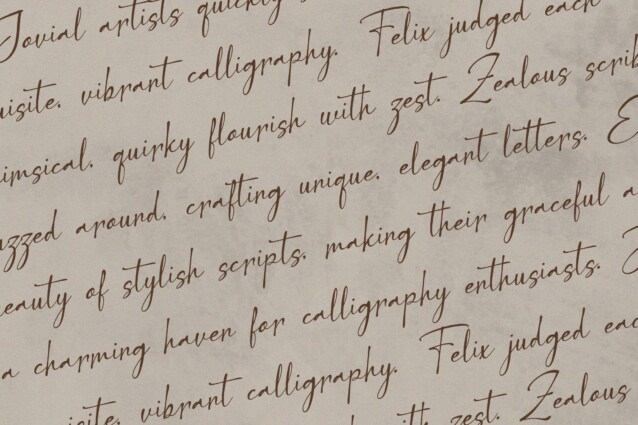 Jovial artists quickly
vibrant calligraphy. Felix judged each
quirky flourish with zest. Zealous
around, crafting unique, elegant letters.
of stylish scripts, making their graceful
a charming haven for calligraphy enthusiasts.
vibrant calligraphy. Felix judged
zest. Zealous